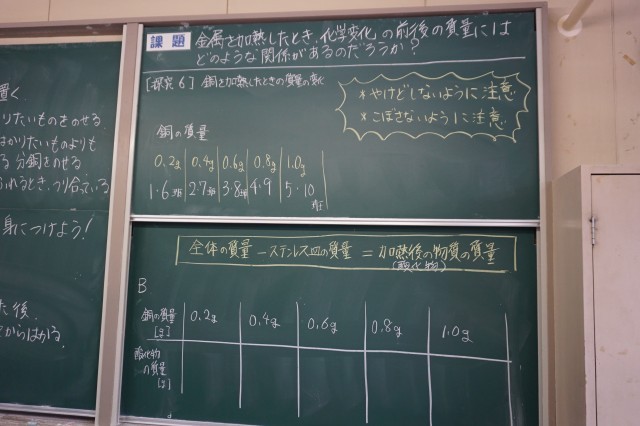 置く
りたいものをのせる
はかりたいものよりも
る分銅をのせる
ふれるとき、つり合っている
身につけよう!
た後、
からはかる
課題
金属を加熱したとき、化学変化の前後の質量には
どのような関係があるのだろうか?
[探究6] 銅を加熱したときの質量の変化
*やけどしないように注意
*こぼさないように注意
銅の質量
0.2g 0.4g 0.6g 0.8g 1.0g
1・6班 2・7班 3・8班 4・9 5・10
班
全体の質量 - ステンレス皿の質量 = 加熱後の物質の質量
(酸化物)
B
銅の質量 0.2g 0.4g 0.6g 0.8g 1.0g
[g]
酸化物
の質量
[g]